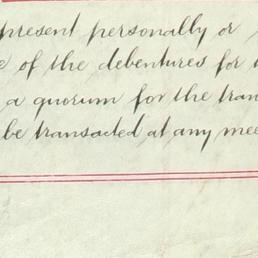 present personally or
of the debentures for
a quorum for the tran
be transacted at any mee